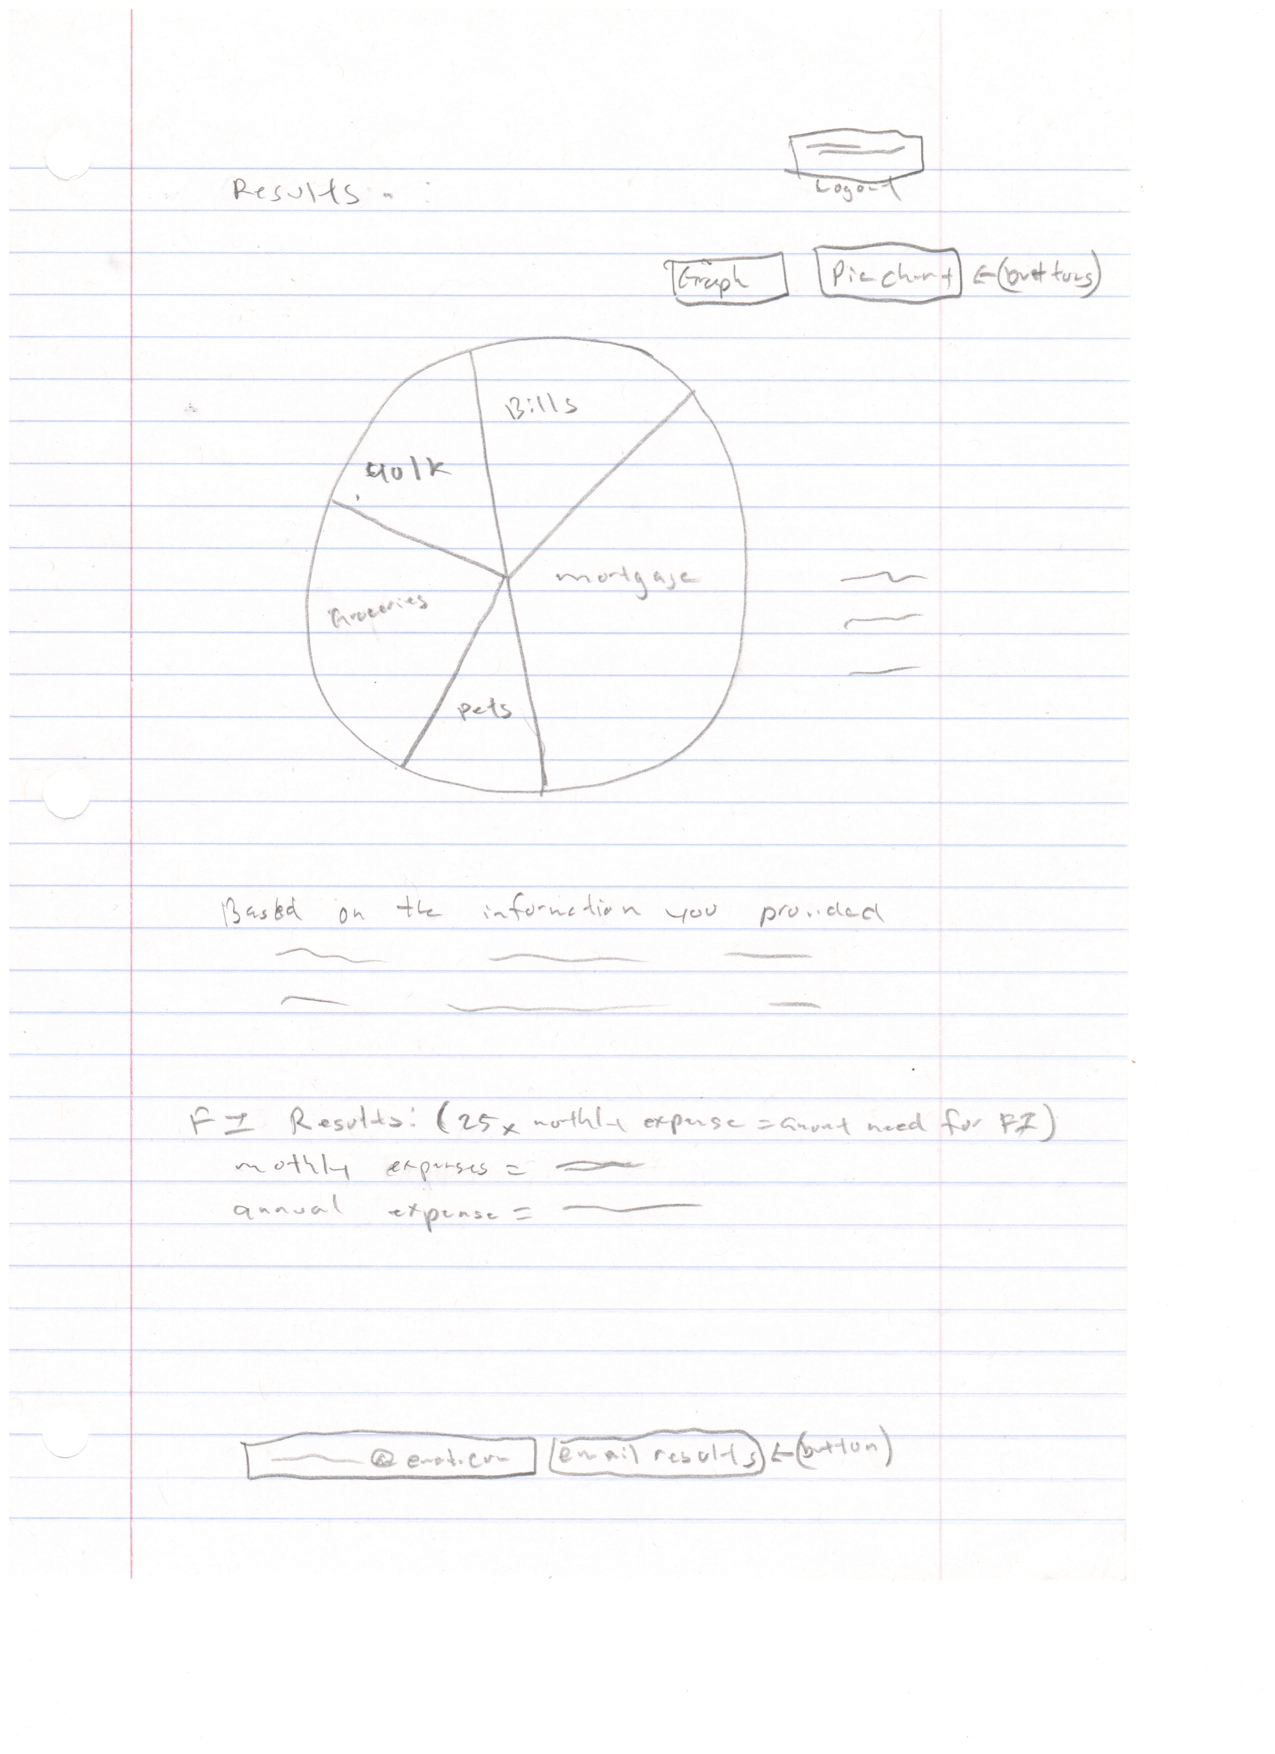 Logout
Results :
Graph
Pie chart ← (buttons)
Bills
401k
mortgage
Groceries
pets
Based on the information you provided
FI Results: (25x monthly expense = amount need for FI)
mothly expenses =
annual expense =
@email.com email results ← (button)